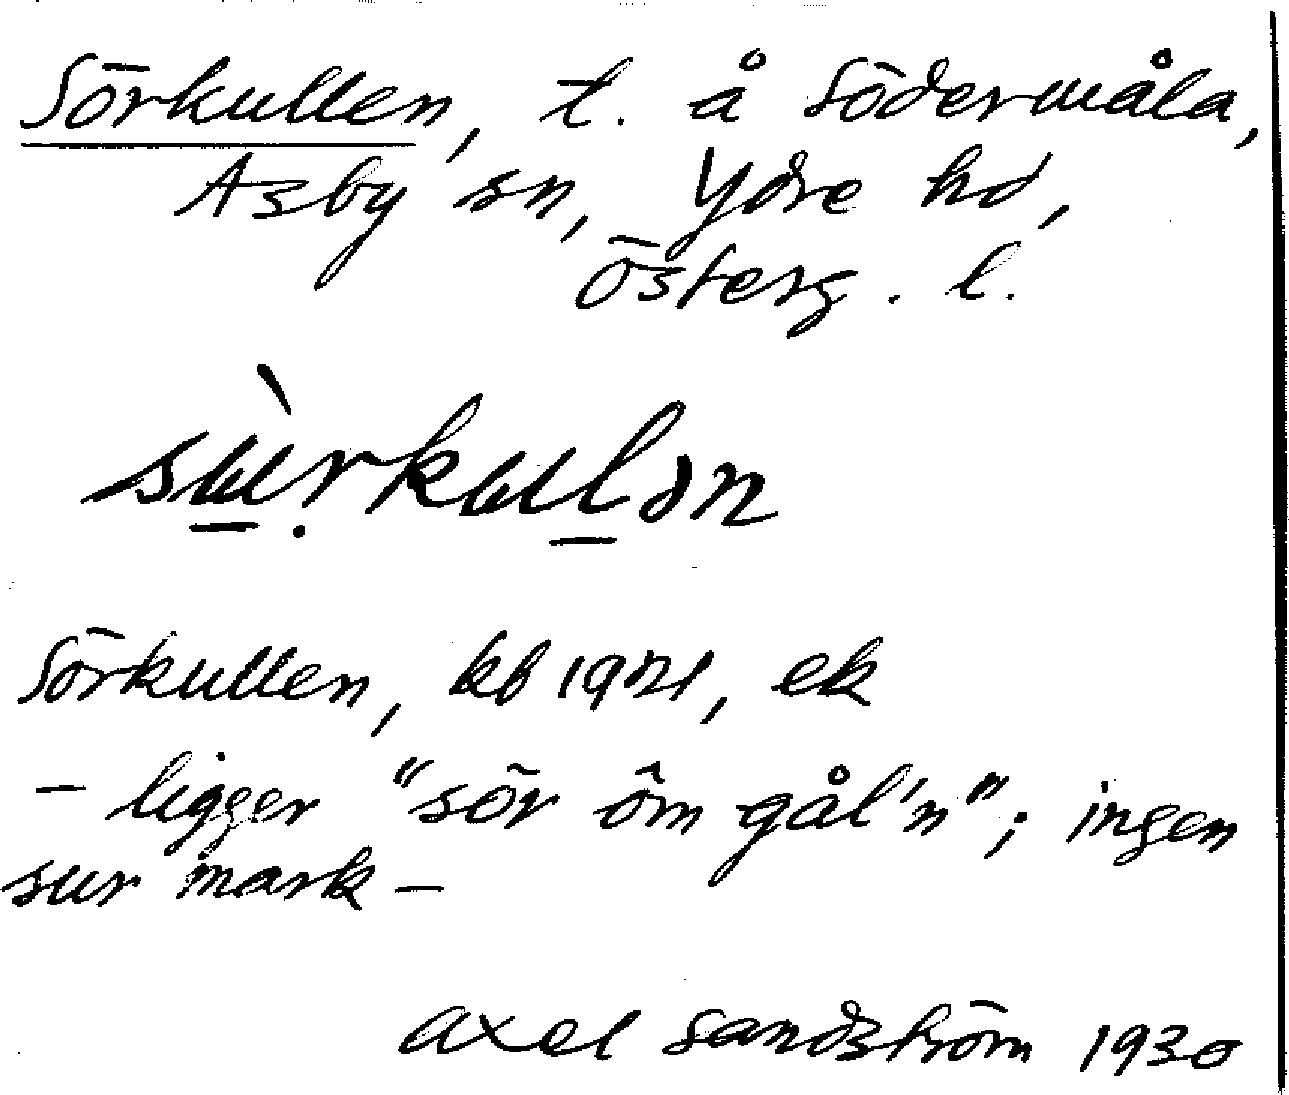 Sörkullen, t. å Södermåla,
Asby sn, Ydre hd,
Österg. l.
sùrkulən
Sörkullen, kb 1921, ek
– ligger "sör ôm gål'n"; ingen
sur mark –
Axel Sandström 1930